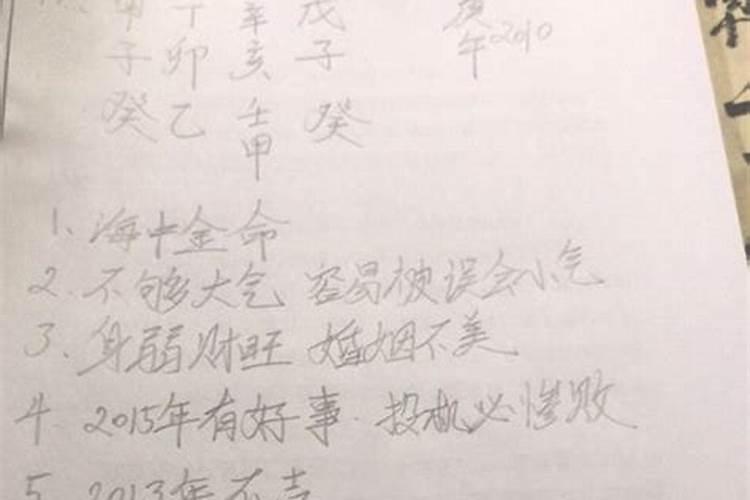 甲 丁 辛 戊 庚
子 卯 亥 子 午 2010
癸 乙 壬 癸
甲
1. 海中金命
2. 不够大气 容易被误会小气
3. 身弱财旺 婚姻不美
4. 2015年有好事. 投机必惨败
5. 2013年不吉